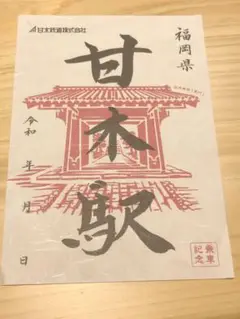 甘木鉄道株式会社
福岡県
甘木駅
令和 年 月 日
乗車
記念